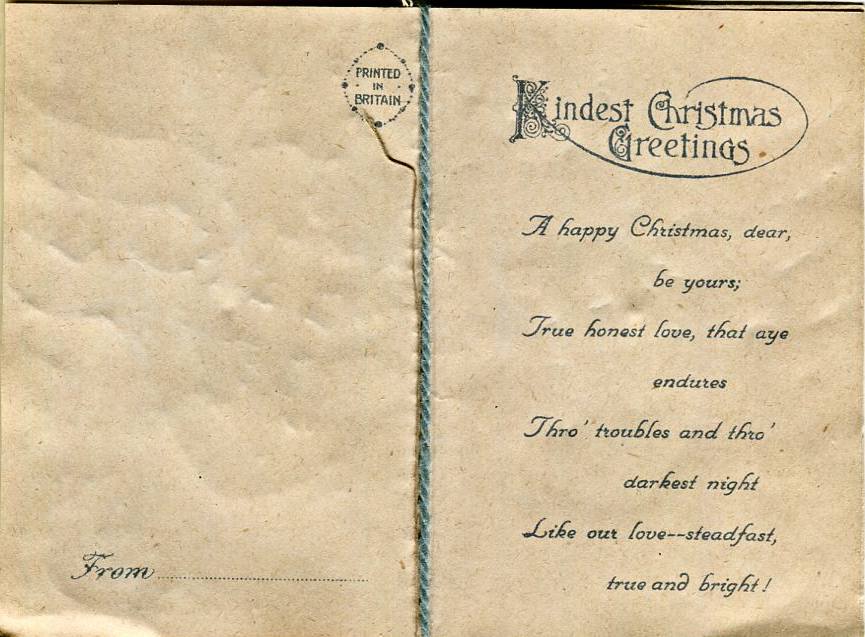 PRINTED
IN
BRITAIN
From
Kindest Christmas
Greetings
A happy Christmas, dear,
be yours;
True honest love, that aye
endures
Thro' troubles and thro'
darkest night
Like our love--steadfast,
true and bright!